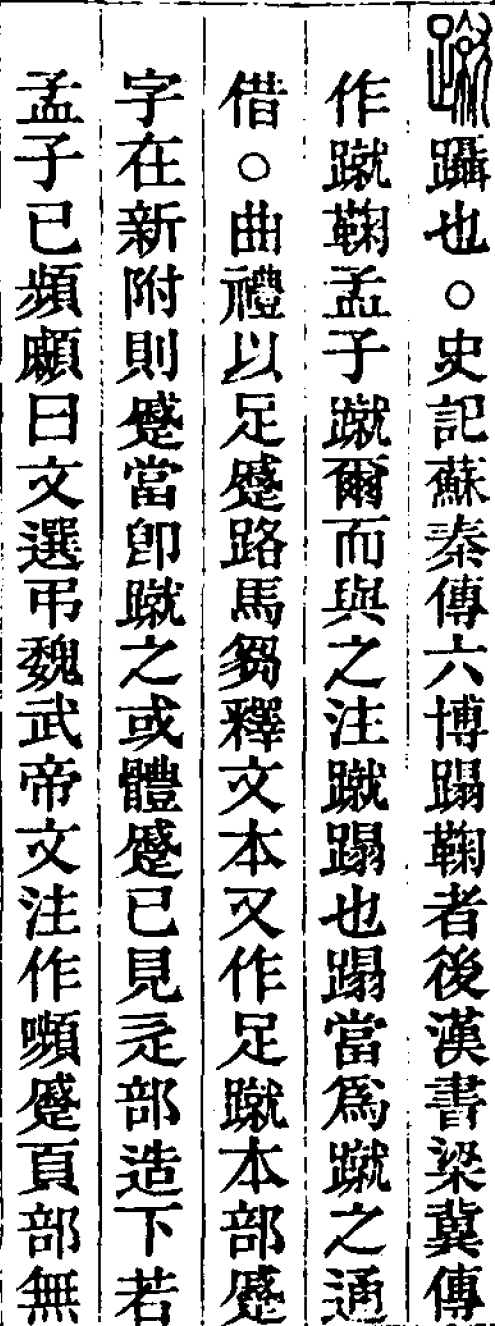 蹴躡也○史記蘇秦傳六博蹋鞠者後漢書梁冀傳
作蹴鞠孟子蹴爾而與之注蹴蹋也蹋當爲蹴之通
借○曲禮以足蹙路馬芻釋文本又作足蹴本部蹙
字在新附則蹙當卽蹴之或體蹙已見辵部造下若
孟子已頻顣曰文選弔魏武帝文注作嚬蹙頁部無